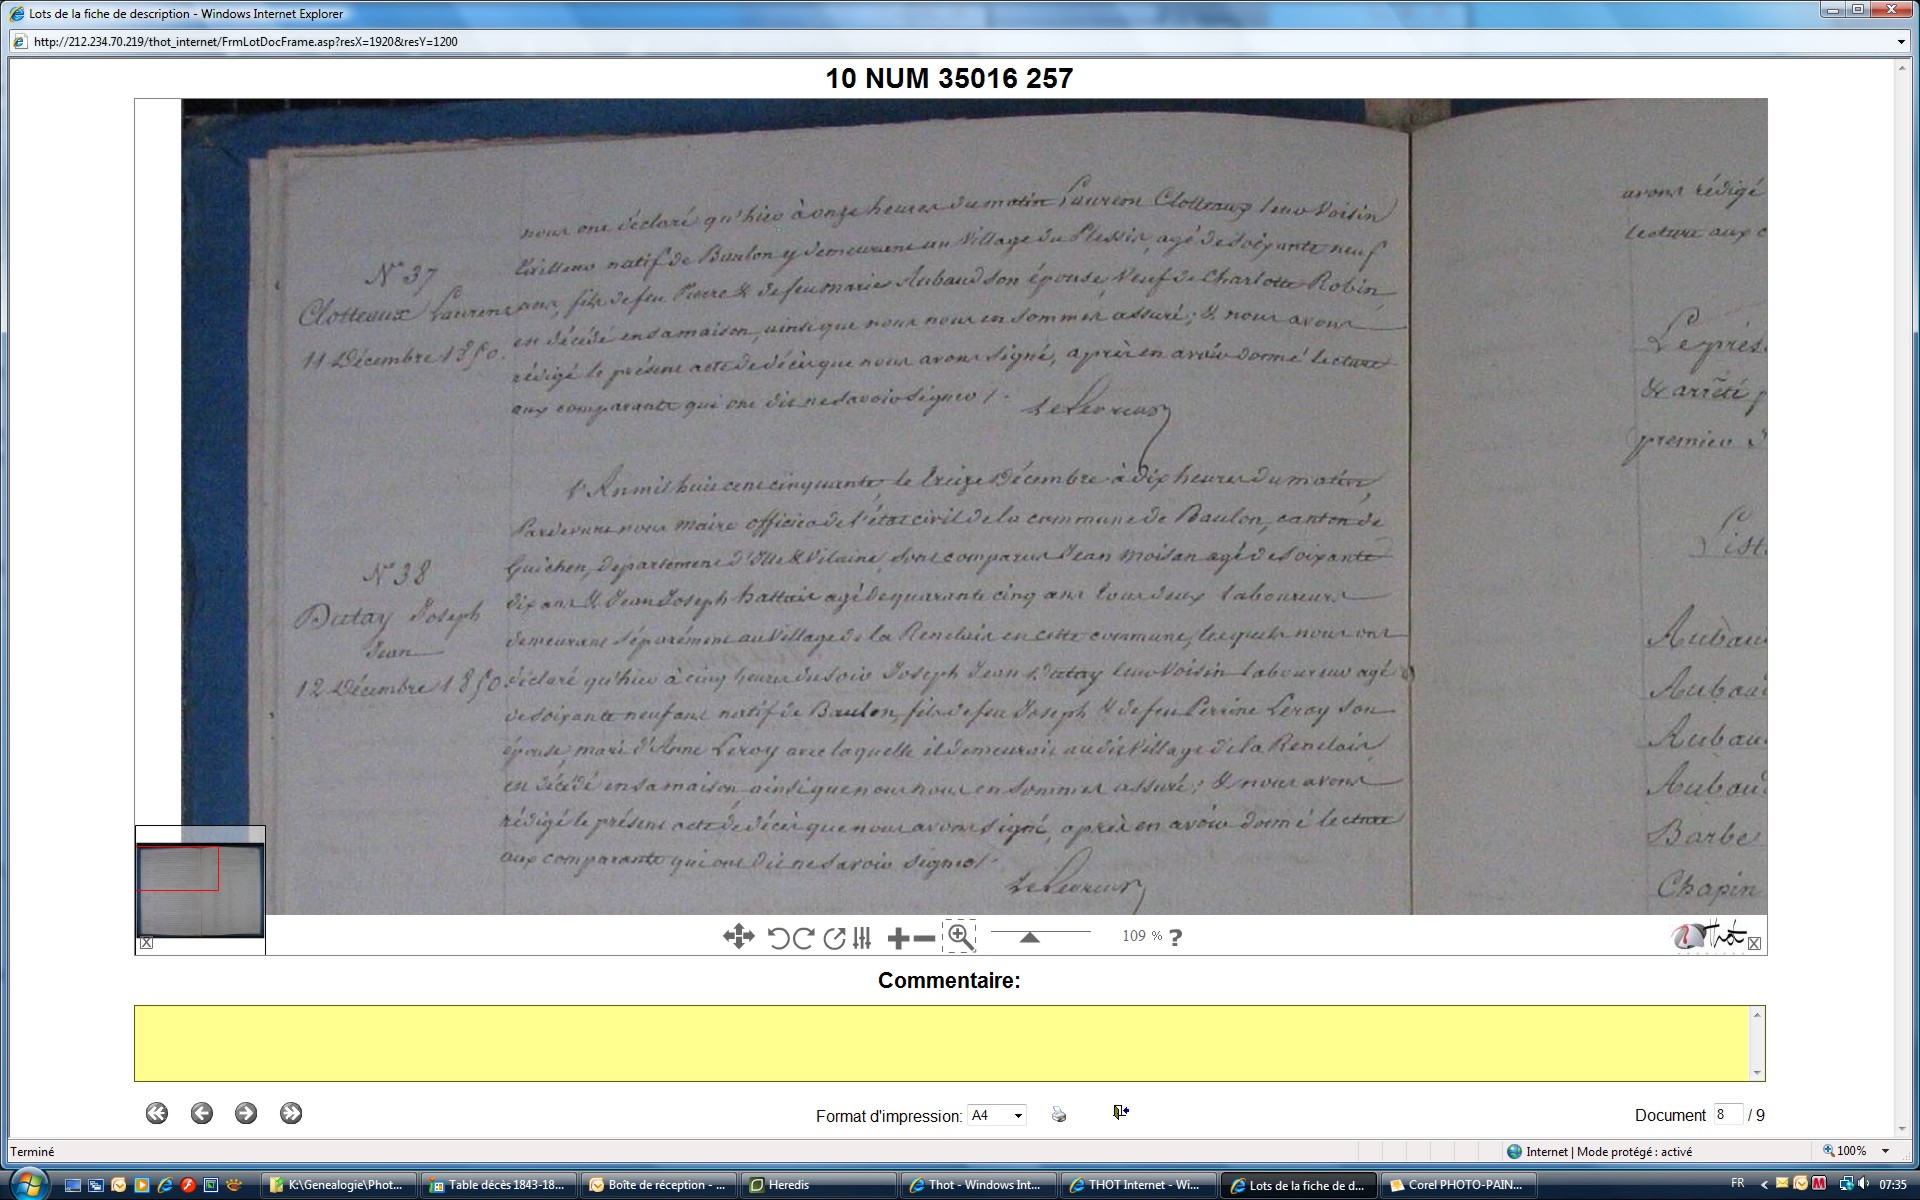 Lots de la fiche de description - Windows Internet Explorer
http://212.234.70.219/thot_internet/FrmLotDocFrame.asp?resX=1920&resY=1200
10 NUM 35016 257
nous ont déclaré qu'hier à onze heures du matin Laurent Clotteaux leur voisin
natif de Baulon y demeurant au village du Plessix, agé de soixante neuf
N° 37
Clotteaux Laurent
11 Décembre 1850.
ans, fils de feu Pierre & de feu marie Aubaud son épouse, veuf de Charlotte Robin,
est décédé en sa maison, ainsi que nous nous en sommes assuré; & nous avons
rédigé le présent acte de décès que nous avons signé, après en avoir donné lecture
aux comparants qui ont dit ne savoir signer /.
l'An mil huit cent cinquante, le treize Décembre à dix heures du matin,
Pardevant nous maire officier de l'état civil de la commune de Baulon, canton de
Guichen, département d'Ille & Vilaine, sont comparus Jean Moisan agé de soixante
N° 38
Datay Joseph
Jean
12 Décembre 1850.
dix ans & Jean Joseph agé de quarante cinq ans tous deux laboureurs
demeurant séparément au village de la en cette commune, lesquels nous ont
déclaré qu'hier à cinq heures du soir Joseph Jean Datay leur voisin laboureur agé
de soixante neuf ans natif de Baulon, fils de feu Joseph & de feu Perrine Leroy son
épouse, mari d'Anne Leroy avec laquelle il demeurait au dit village de la
est décédé en sa maison ainsi que nous nous en sommes assuré; & nous avons
rédigé le présent acte de décès que nous avons signé, après en avoir donné lecture
aux comparants qui ont dit ne savoir signer /.
avons rédigé
lecture aux c
Le prés
& arrêté p
premier
List
Aubau
Aubau
Aubau
Aubau
Barbe
Chapin
109 % ?
Thot
Commentaire:
Format d'impression: A4
Document 8 / 9
Terminé
Internet | Mode protégé : activé
100%
K:\Genealogie\Phot...
Table décès 1843-18...
Boîte de réception - ...
Heredis
Thot - Windows Int...
THOT Internet - Wi...
Lots de la fiche de d...
Corel PHOTO-PAIN...
FR
07:35